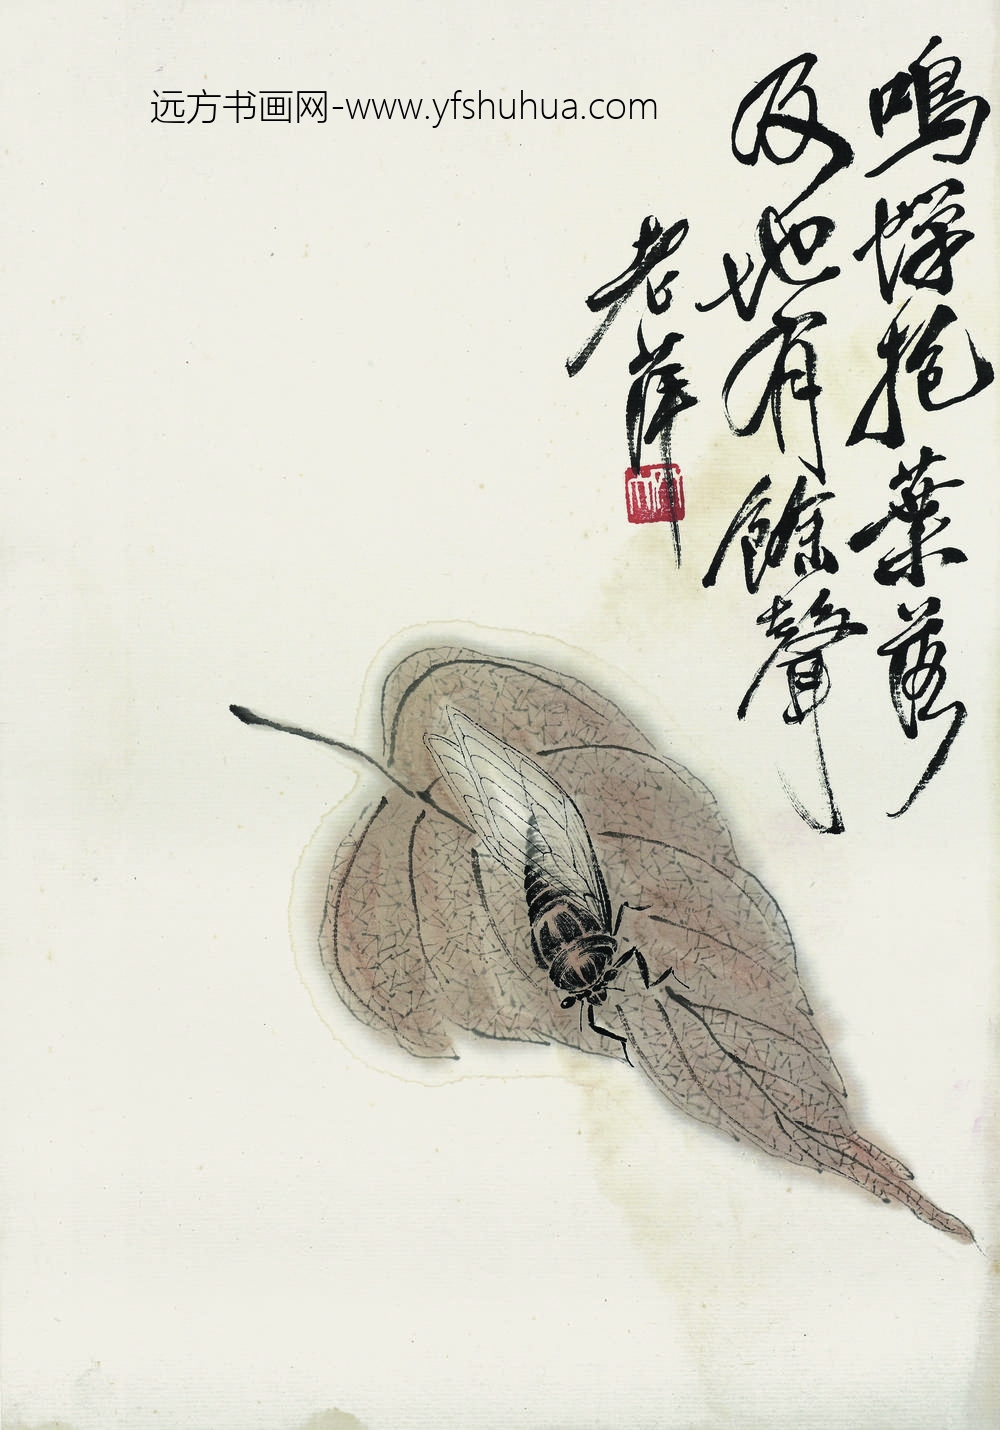 远方书画网-www.yfshuhua.com
鳴蟬抱葉落
及地有餘聲
老萍